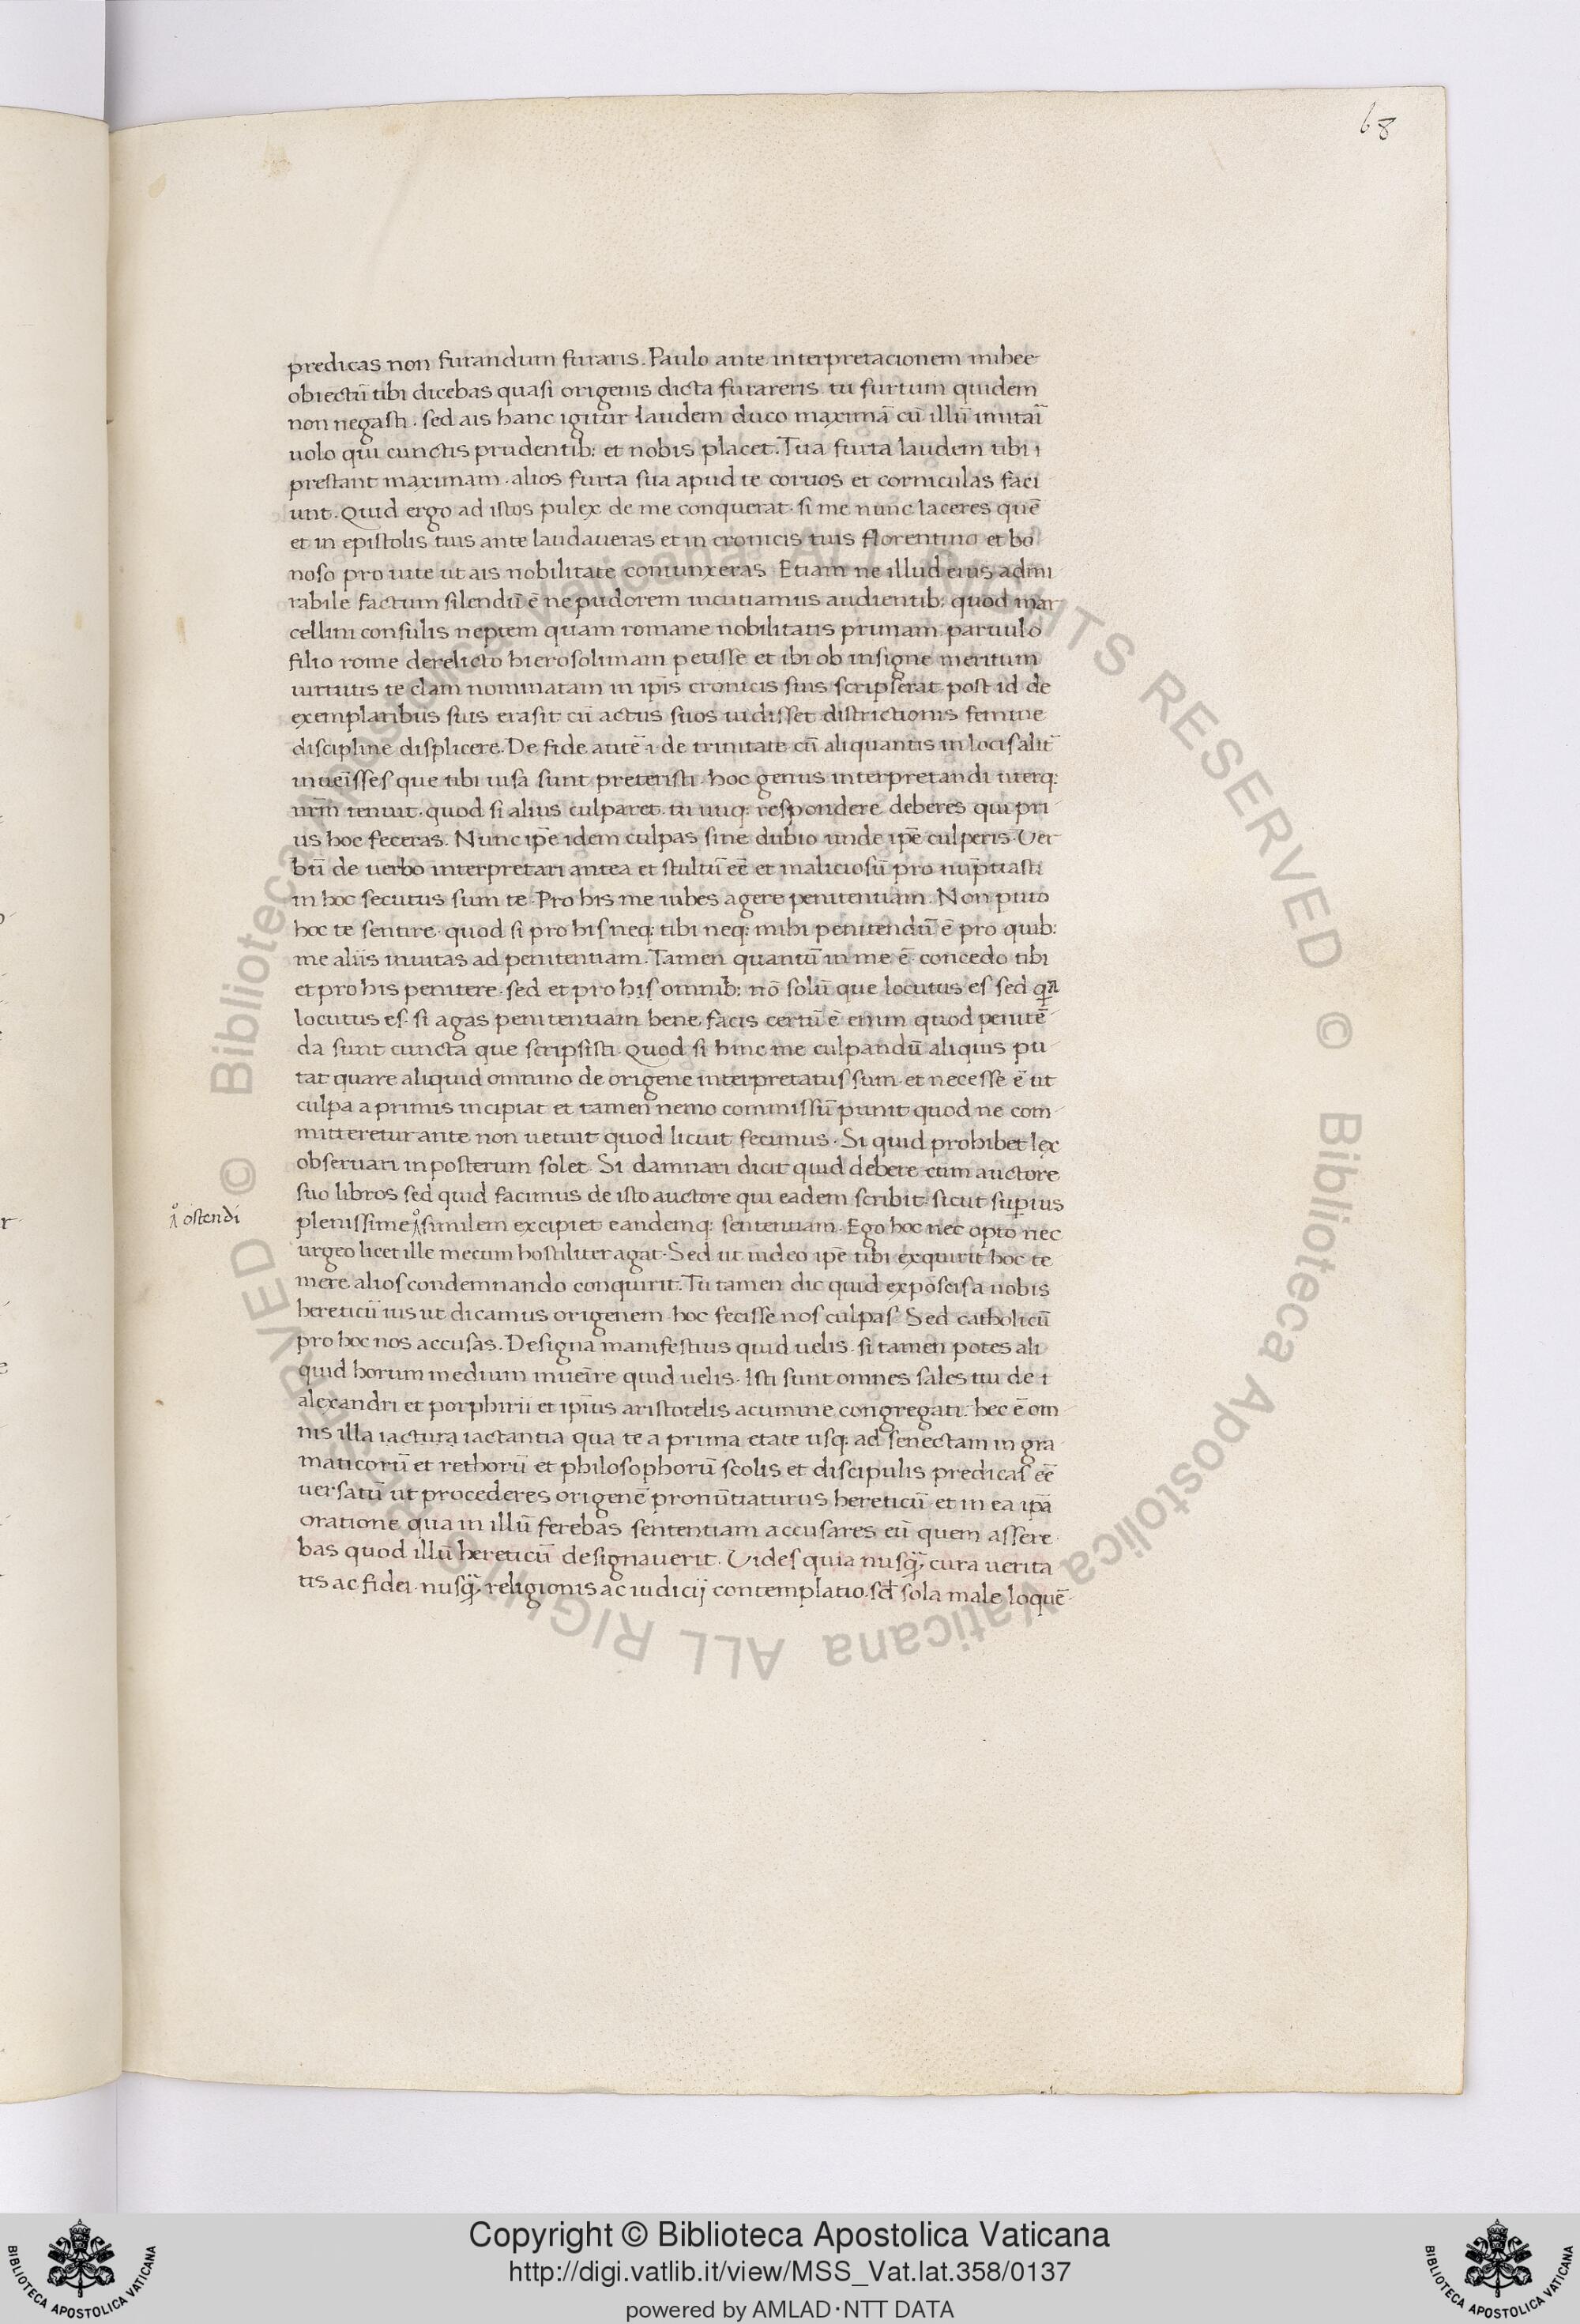 68
predicas non furandum furaris. Paulo ante interpretacionem mihee
obiectū tibi dicebas quasi origenis dicta furareris. tu furtum quidem
non negasti. sed ais hanc igitur laudem duco maximā cū illū imitari
uolo qui cunctis prudentib: et nobis placet. Tua furta laudem tibi
prestant maximam. alios furta sua apud te coruos et corniculas faci
unt. Quid ergo ad istos pulex de me conquerat. si me nunc laceres quē
et in epistolis tuis ante laudaueras et in cronicis tuis florentino et bo
noso pro uite ut ais nobilitate coniunxeras. Etiam ne illud eius admi
rabile factum silendū ē ne pudorem incutiamus audientib: quod mar
cellini consulis neptem quam romane nobilitatis primam paruulo
filio rome derelicto hierosolimam petisse et ibi ob insigne meritum
uirtutis te clam nominatam in ip̄is cronicis suis scripserat. post id de
exemplaribus suis erasit cū actus suos uidisset districtionis femine
discipline displicere. De fide autē .i. de trinitate cū aliquantis in locis alit̄
inueīsses que tibi uisa sunt preteristi. hoc genus interpretandi uterq:
nrm̄ tenuit. quod si alius culparet. tu utiq: respondere deberes qui pri
us hoc feceras. Nunc ip̄e idem culpas sine dubio unde ip̄e culperis. Uer
bū de uerbo interpretari antea et stultū eē et maliciosū pronun̄tiasti
in hoc secutus sum te. Pro his me iubes agere penitentiam. Non puto
hoc te sentire. quod si pro his neq: tibi neq: mihi penitendū ē pro quib:
me aliis inuitas ad penitentiam. Tamen quantū in me ē. concedo tibi
et pro his penitere. sed et pro his omnib: nō solū que locutus es sed
locutus es. si agas penitentiam bene facis certū ē enim quod penitē
da sunt cuncta que scripsisti. Quod si hinc me culpandū aliquis pu
tat quare aliquid omnino de origene interpretatus sum. et necesse ē ut
culpa a primis incipiat et tamen nemo commissū punit quod ne com
mitteretur ante non uetuit quod licuit fecimus. Si quid prohibet lex
obseruari in posterum solet. Si damnari dicit quid debere cum auctore
suo libros sed quid facimus de isto auctore qui eadem scribit. sicut sup̄ius
ostendi
plenissime similem excipiet eandemq: sententiam. Ego hoc nec opto nec
urgeo licet ille mecum hostiliter agat. Sed ut uideo ip̄e tibi exquirit hoc te
mere alios condemnando conquirit. Tu tamen dic quid exposcis a nobis
hereticū uis ut dicamus origenem. hoc fecisse nos culpas. Sed catholicū
pro hoc nos accusas. Designa manifestius quid uelis. si tamen potes ali
quid horum medium inueīre quid uelis. Isti sunt omnes sales tui de
alexandri et porphirii et ip̄ius aristotelis acumine congregati. hec ē om
nis illa iactura iactantia qua te a prima etate usq: ad senectam in gra
maticorū et rethorū et philosophorū scolis et discipulis predicas eē
uersatū ut procederes origenē pronūtiaturus hereticū. et in ea ip̄a
oratione qua in illū ferebas sententiam accusares eū quem assere
bas quod illū hereticū designauerit. Uides quia nusq̄ cura uerita
tis ac fidei. nusq̄ religionis ac iudicij contemplatio. sd̄ sola male loquē
Copyright © Biblioteca Apostolica Vaticana
http://digi.vatlib.it/view/MSS_Vat.lat.358/0137
powered by AMLAD·NTT DATA